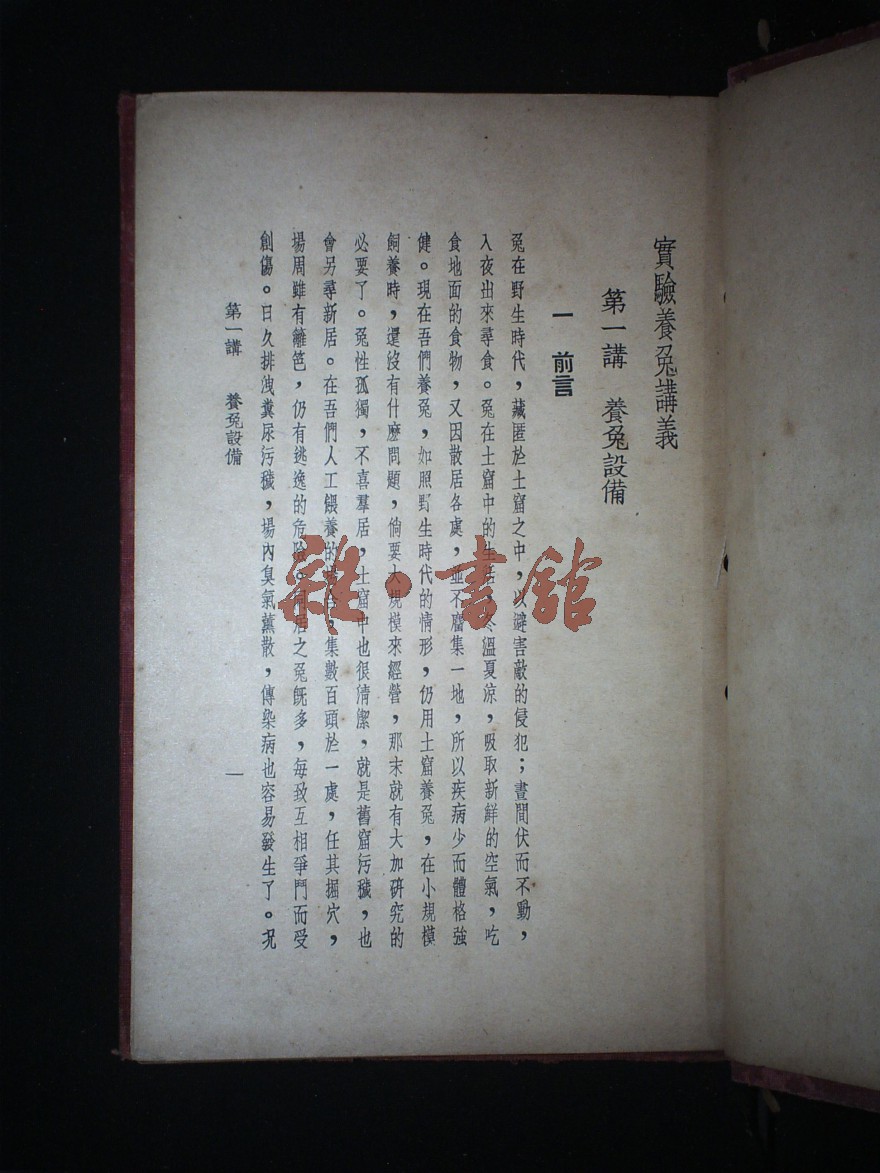 實驗養兔講義
第一講　養兔設備
一　前言
兔在野生時代，藏匿於土窟之中，以避害敵的侵犯；晝間伏而不動，
入夜出來尋食。兔在土窟中的生活，冬溫夏涼，吸取新鮮的空氣，吃
食地面的食物，又因散居各處，並不麕集一地，所以疾病少而體格強
健。現在吾們養兔，如照野生時代的情形，仍用土窟養兔，在小規模
飼養時，還沒有什麼問題，倘要大規模來經營，那末就有大加研究的
必要了。兔性孤獨，不喜羣居，土窟中也很清潔，就是舊窟污穢，也
會另尋新居。在吾們人工餵養的，集數百頭於一處，任其掘穴，
場周雖有籬笆，仍有逃逸的危險。同居之兔旣多，每致互相爭鬥而受
創傷。日久排洩糞尿污穢，場內臭氣薰散，傳染病也容易發生了。况
第一講　養兔設備
一
雜·書館